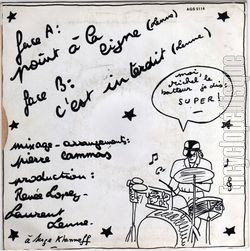 AGS 5114
face A:
point à la
ligne (Lenne)
face B:
c'est interdit (Lenne)
moi,
Michel le
batteur je dis:
SUPER!
mixage - arrangements:
pierre Cammas
production:
Renée Lopez
Laurent
Lenne.
à Serge